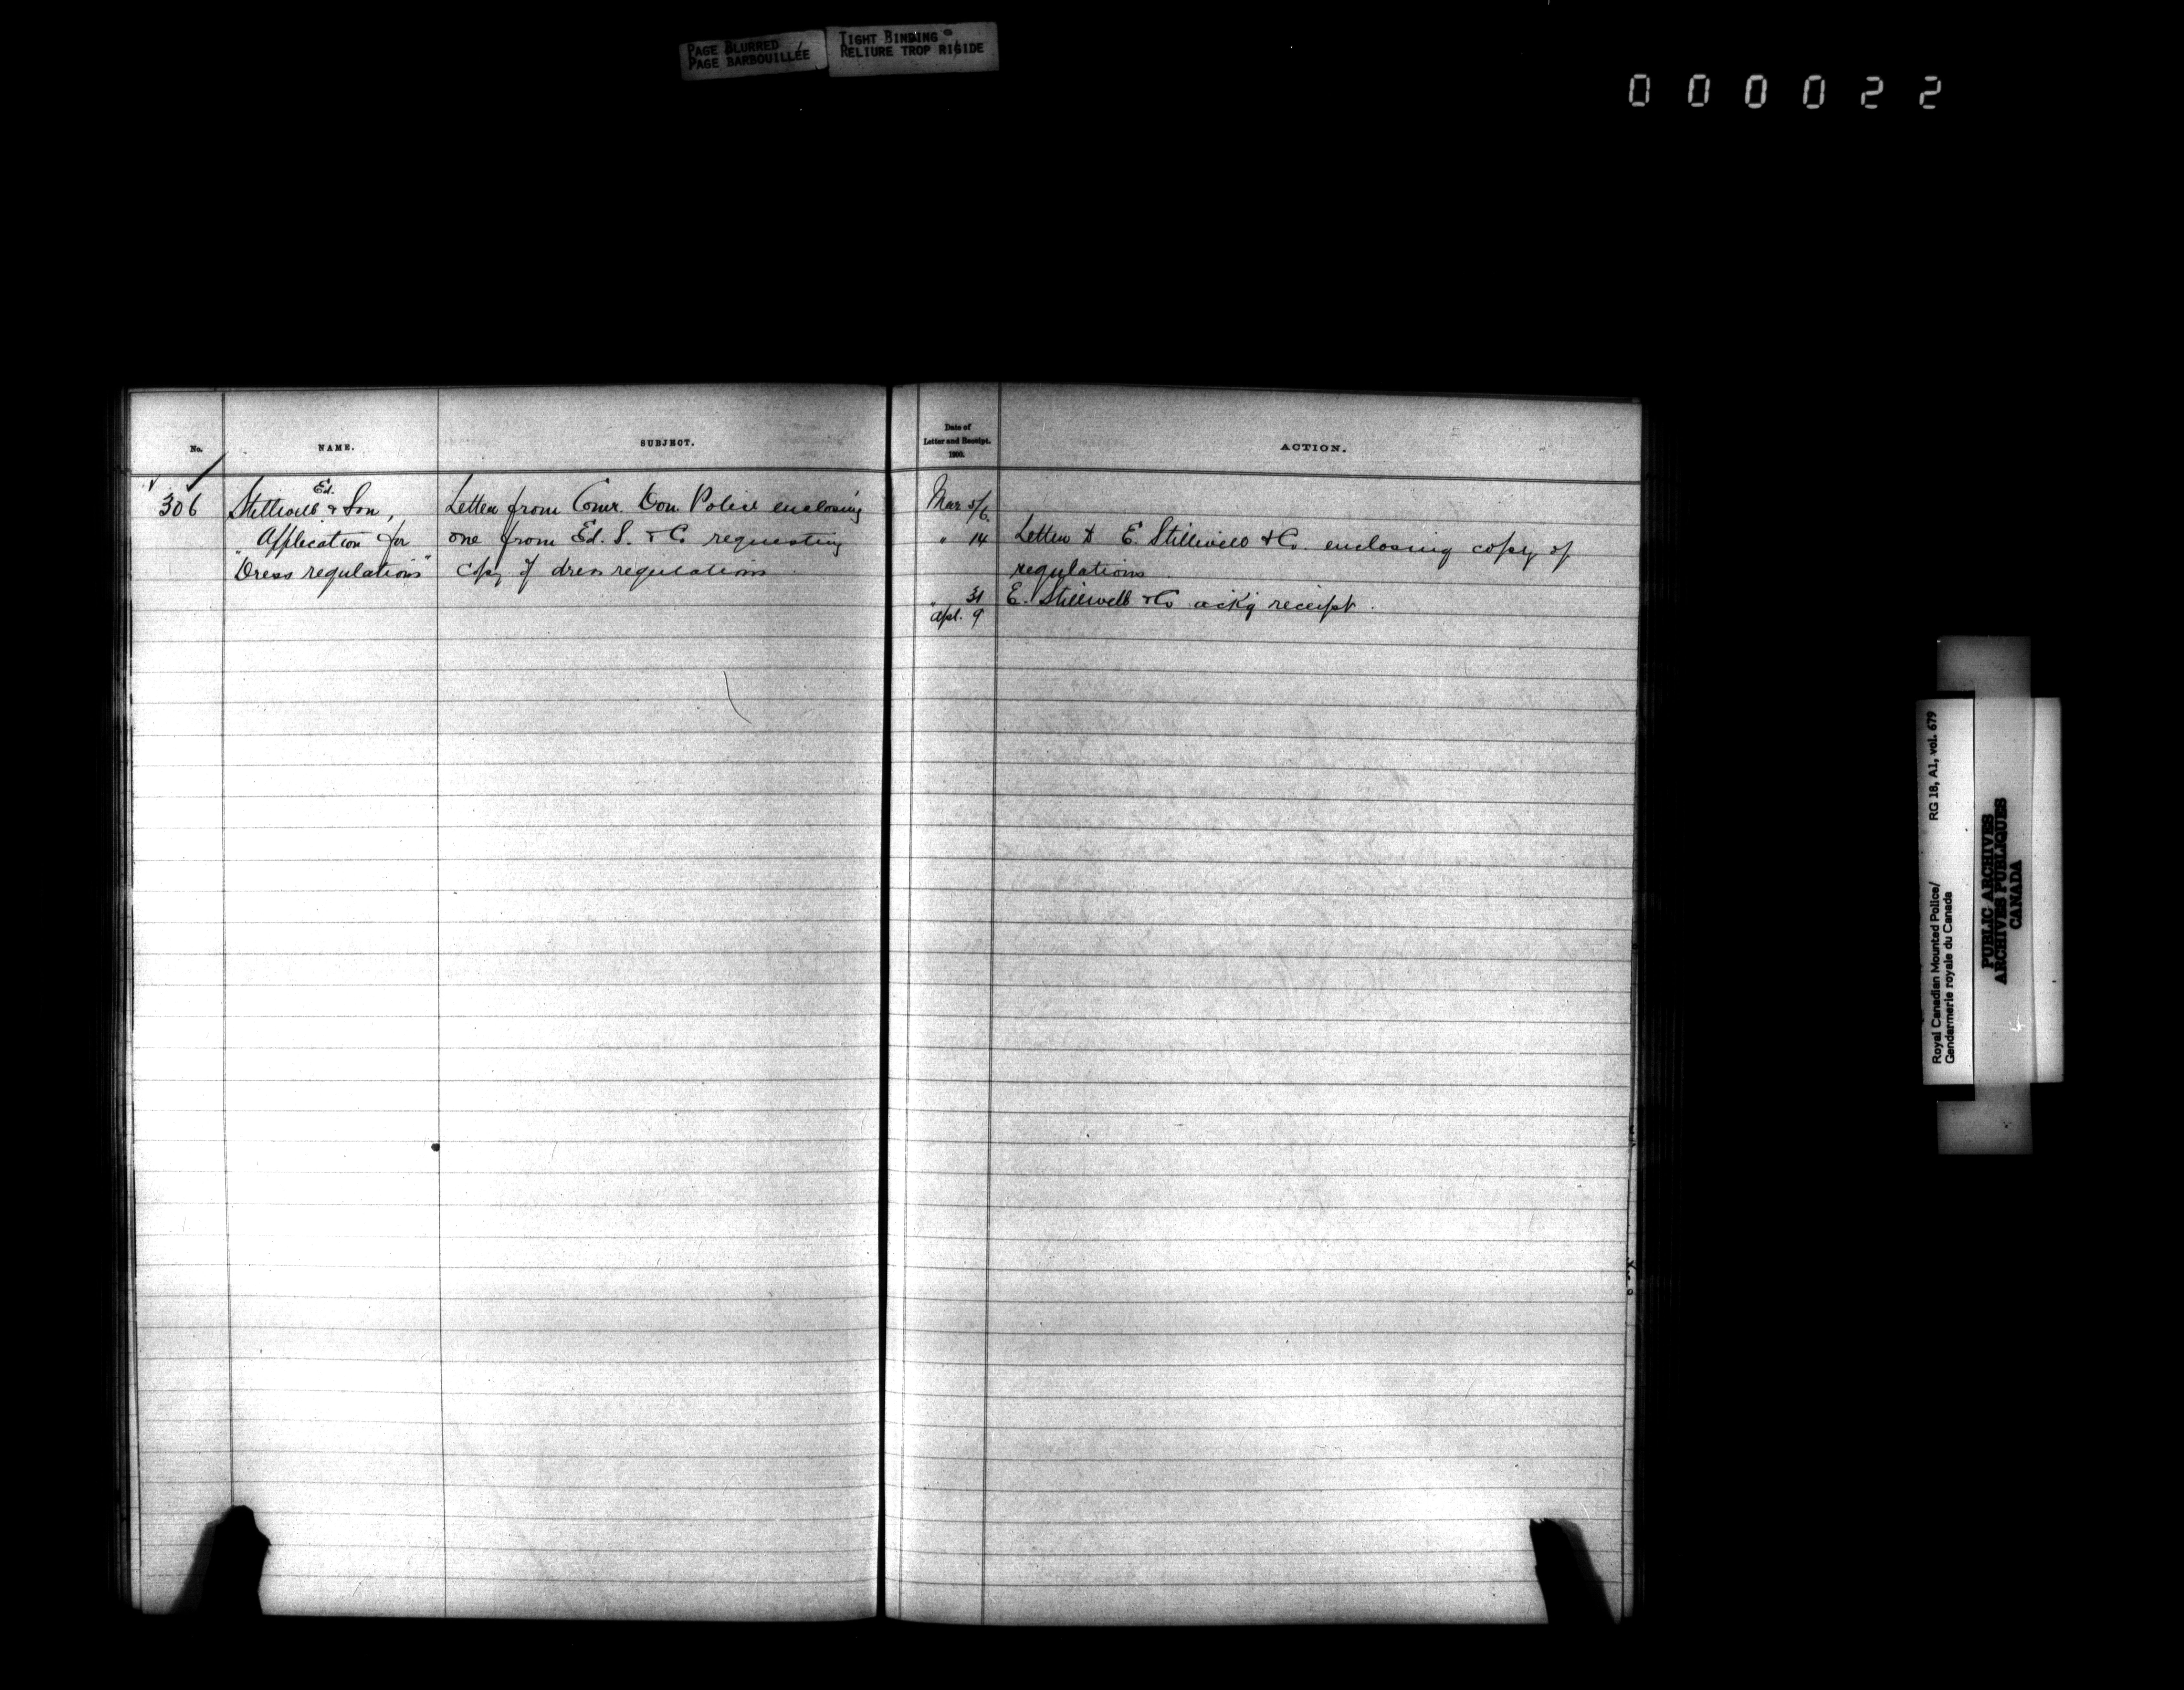 PAGE BLURRED
PAGE BARBOUILLÉE
TIGHT BINDING
RELIURE TROP RIGIDE
000022
No.
NAME.
SUBJECT.
Date of
Letter and Receipt.
1900.
ACTION.
306
Ed.
Stillwell & Son,
Application for
"Dress regulations"
Letter from Comr. Dom. Police enclosing
one from Ed. S. & Co requesting
copy of dress regulations
Mar 5/6.
" 14
Letter to E. Stillwell & Co. enclosing copy of
regulations.
" 31
E. Stillwell & Co ackg receipt.
Apl. 9
Royal Canadian Mounted Police/
Gendarmerie royale du Canada
RG 18, A1, vol. 679
PUBLIC ARCHIVES
ARCHIVES PUBLIQUES
CANADA